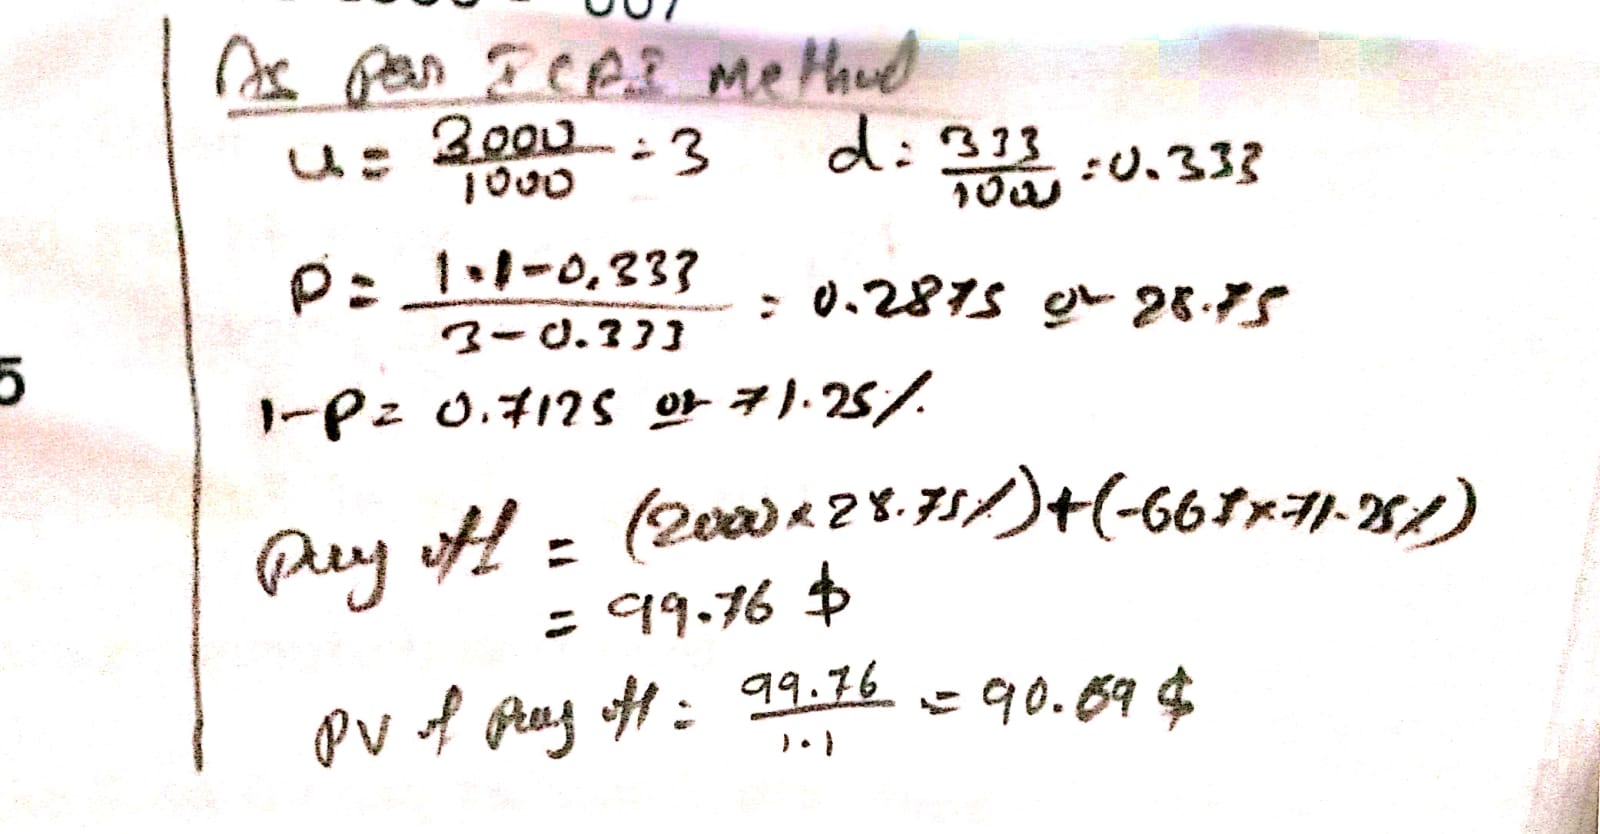 As per ICAI Method
u = 3000/1000 = 3 d = 333/1000 = 0.333
P = (1.1-0.333)/(3-0.333) = 0.2875 or 28.75
1-P = 0.7125 or 71.25%
Pay off = (2000 x 28.75%)+(-667 x 71.25%)
= 99.76 $
PV of Pay off = 99.76/1.1 = 90.69 $
5